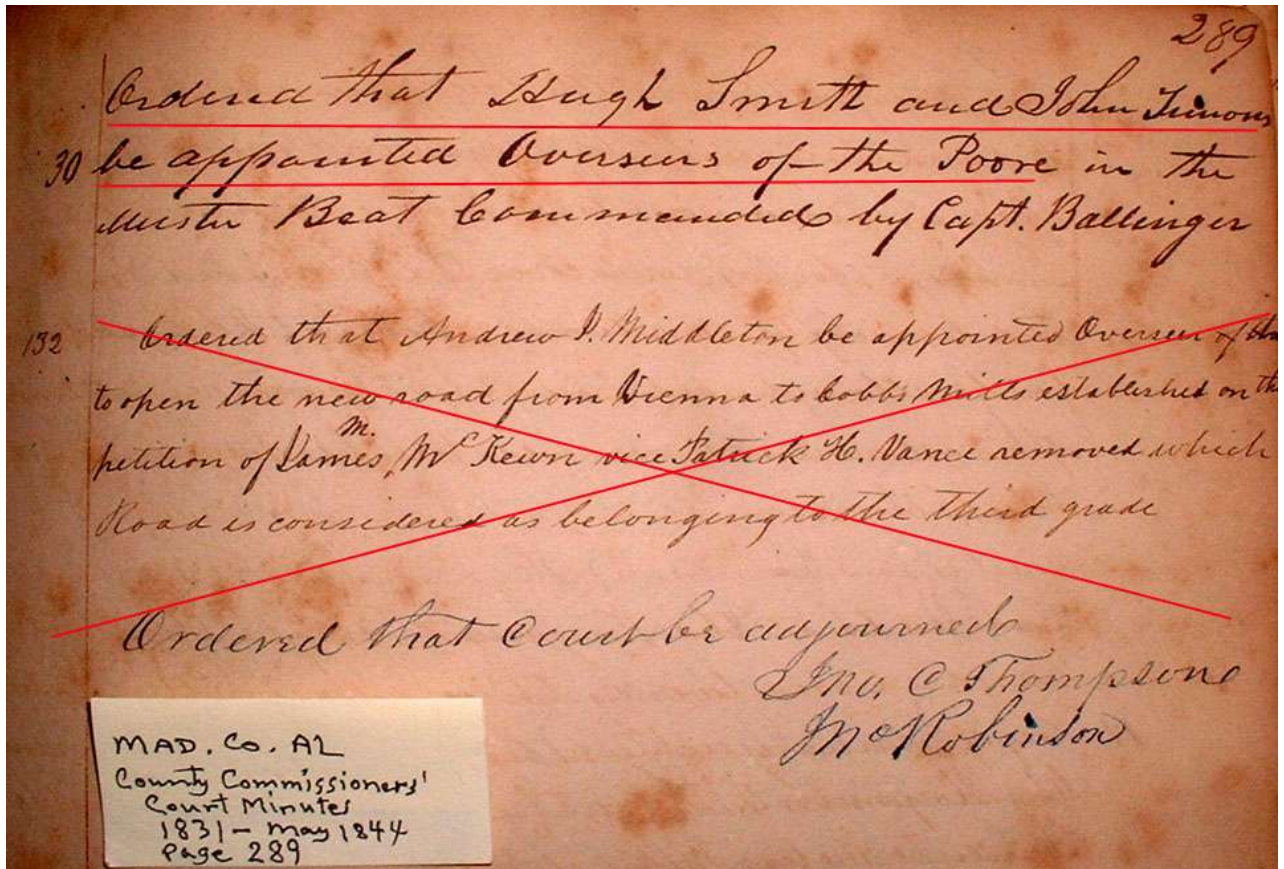 289
Ordered that Hugh Smith and John Timons
30 be appointed Overseers of the Poore in the
Muster Beat Commanded by Capt. Ballinger
132 Ordered that Andrew J. Middleton be appointed Overseer of
to open the new road from Vienna to Cobbs Mills established on the
petition of James M. McKewn vice Patrick H. Vance removed which
Road is considered as belonging to the third grade
Ordered that Court be adjourned
Jno. C Thompson
Jno Robinson
MAD. Co. AL
County Commissioners'
Court Minutes
1831 - May 1844
Page 289